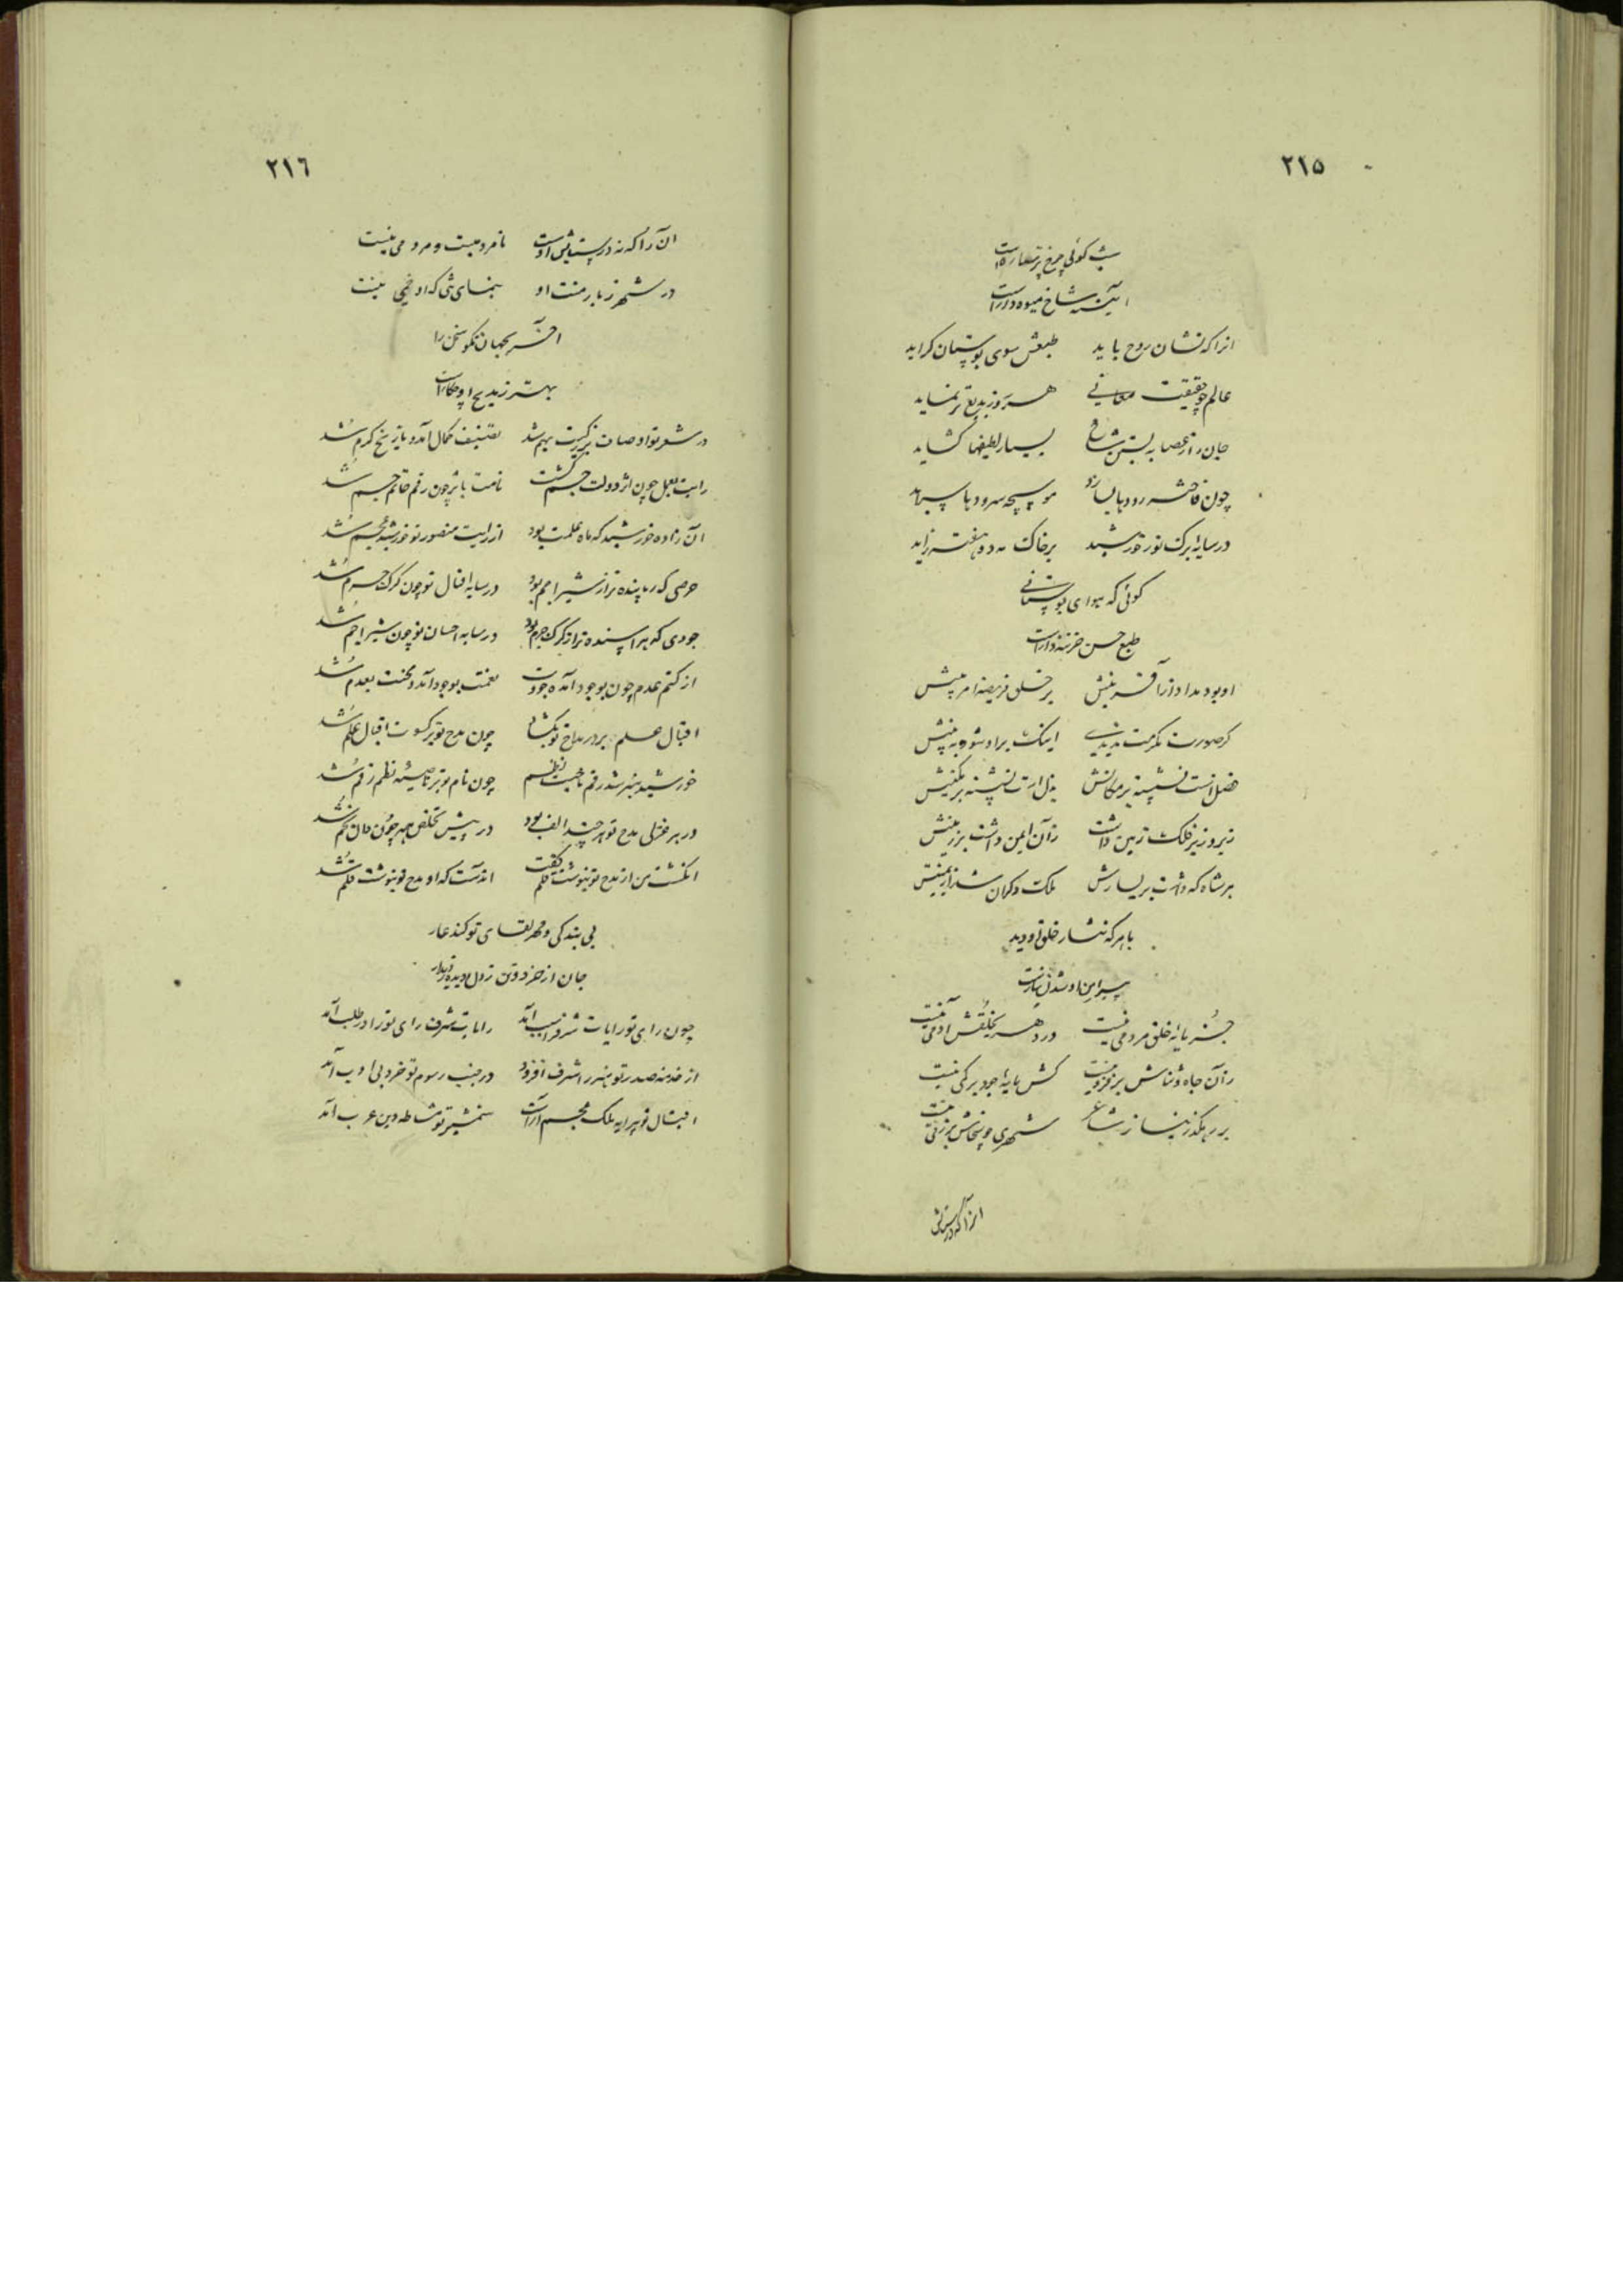 ۲۱۵
شب گوئی چرخ پر ستاره است
آئینه شاخ میوه دار است
انرا که نشان روح باید طبعش سوی بوستان کراید
عالم چو حقیقت معانی هر روز بدیع تر نماید
جان را ز عصابه بستن شاخ بسیار لطیفها کشاید
چون فاخته رودها بسازد موسیچه سرودها سراید
در سایه برک نور خورشید بر خاک مه دو هفته زاید
کوئی که هوای بوستانی
طبع حسن خزینه دار است
او بود مداد از آفرینش بر خلق فریضه امر پیش
کر صورت مکرمت ندیدی اینک بر او شو و به بینش
فضل است نشسته بر مکانش بذل است نشسته بر مکینش
زیر و زبر فلک زمین داشت زآن ایمن داشت بر زمینش
هر شاه که داشت بر یسارش ملک دکران شد از یمینش
با هر که نثار خلق او دید
پیرامن او شدن نیارست
جز مایه خلق مردمی نیست در دهر بخلقش آدمی نیست
زآن جاه و ثناش بر فزونیست کش مایه جود بر کمی نیست
بر رهکذر نیاز شاعر شهری چو سخاش بر زمی نیست
انرا که در ستایش
۲۱٦
آن را که نه در ستایش اوست نامردمیست و مردمی نیست
در شهر ز بار منت او بنمای تنی که او خمی نیست
آخر بجهان نکو سخن را
بهتر ز مدیح او چکار است
در شعر تو اوصاف بزرکیت بهم شد تصنیف کمال آمد و تاریخ کرم شد
رایت بعمل چون اثر دولت جم کشت نامت باثر چون رقم خاتم جم شد
آن زاده خورشید که ماه علمت بود از رایت منصور تو خورشید عجم شد
حرصی که رباینده تر از شیر اجم بود در سایه افضال تو چون کرک حرم شد
جودی که هراسنده تر از کرک حرم بود در سایه احسان تو چون شیر اجم شد
از کتم عدم چون بوجود آمده جودت نعمت بوجود آمد و محنت بعدم شد
اقبال علم بر در مداح تو بکشای چون مدح تو بر کسوت اقبال علم شد
خورشید هنر شد رقم ناصیت نظم چون نام تو بر ناصیه نظم رقم شد
در هر غزلی مدح تو هر چند الف بود در پیش تخلص همه چون دال بخم شد
انکشت من از مدح تو ننوشت قلم کفت انست که او مدح تو ننوشت قلم شد
بی بندکی و مهر لقای تو کند عار
جان از خرد و تن ز دل و دیده ز دیدار
چون رای تو رایات شرف را سبب آمد رایات شرف رای تو را در طلب آمد
از خدمت صدر تو هنر را شرف افزود در جنب رسوم تو خرد بی ادب آمد
اقبال تو پیرایه ملک عجم آراست شمشیر تو مشاطه دین عرب آمد